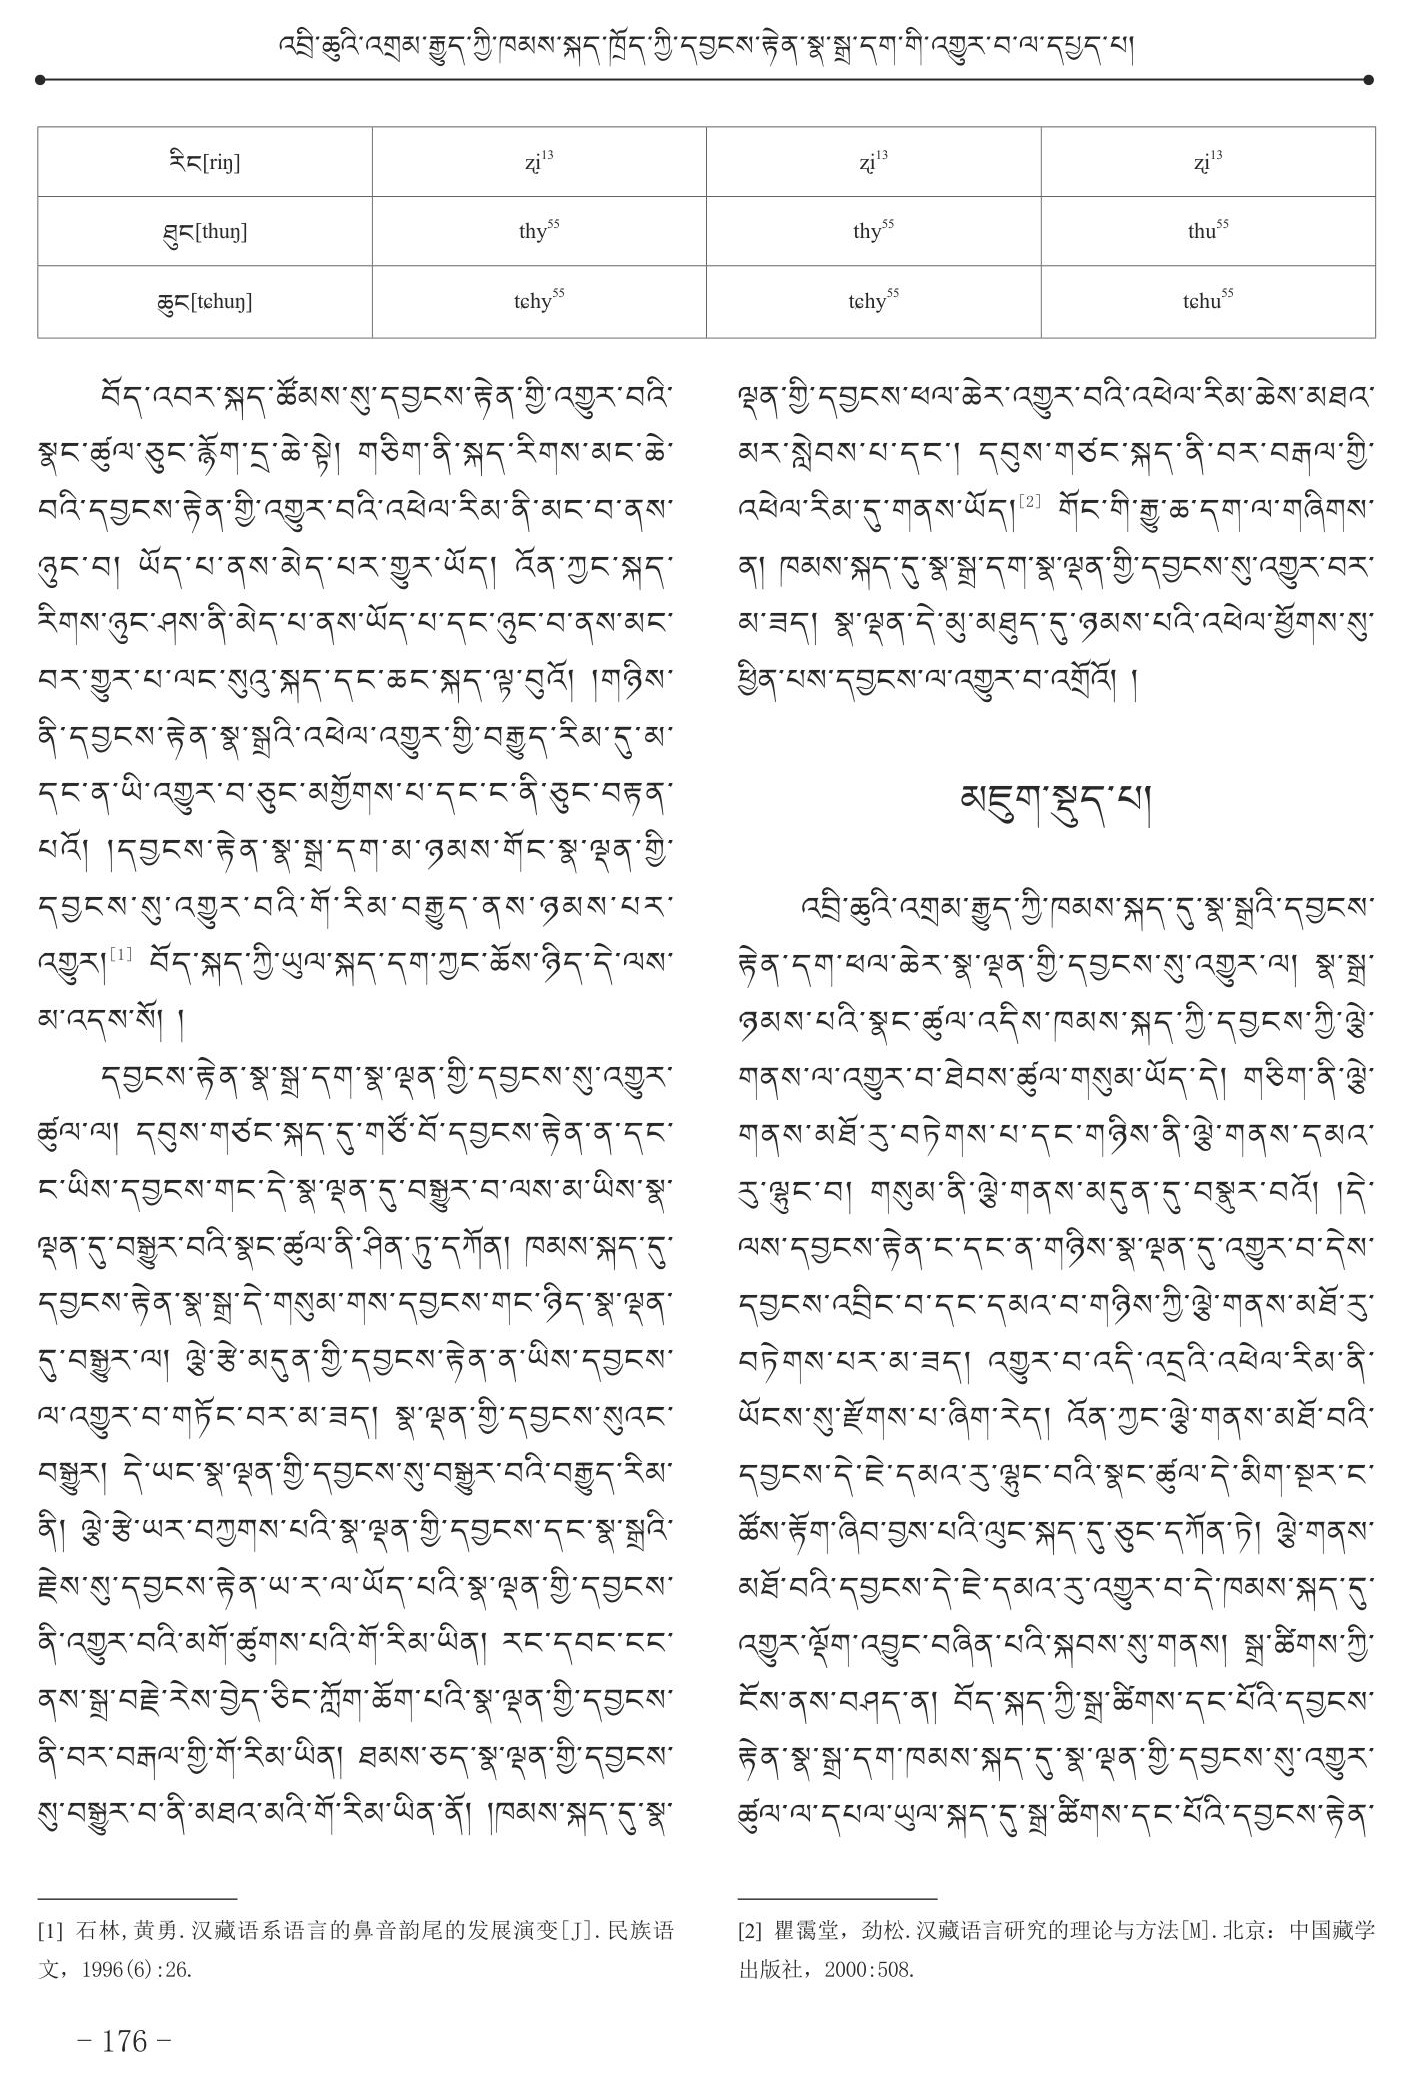 འབྲི་ཆུའི་འགྲམ་རྒྱུད་ཀྱི་ཁམས་སྐད་ཁྲོད་ཀྱི་དབྱངས་རྟེན་སྣ་སྒྲ་དག་གི་འགྱུར་བ་ལ་དཔྱད་པ།
རིང[riŋ] ʐi¹³ ʐi¹³ ʐi¹³
ཐུང[thuŋ] thy⁵⁵ thy⁵⁵ thu⁵⁵
ཆུང[tɕhuŋ] tɕhy⁵⁵ tɕhy⁵⁵ tɕhu⁵⁵
བོད་འབར་སྐད་ཚོམས་སུ་དབྱངས་རྟེན་གྱི་འགྱུར་བའི་
སྣང་ཚུལ་ཅུང་རྙོག་དྲ་ཆེ་སྟེ། གཅིག་ནི་སྐད་རིགས་མང་ཆེ་
བའི་དབྱངས་རྟེན་གྱི་འགྱུར་བའི་འཕེལ་རིམ་ནི་མང་བ་ནས་
ཉུང་བ། ཡོད་པ་ནས་མེད་པར་གྱུར་ཡོད། འོན་ཀྱང་སྐད་
རིགས་ཉུང་ཤས་ནི་མེད་པ་ནས་ཡོད་པ་དང་ཉུང་བ་ནས་མང་
བར་གྱུར་པ་ལང་སུའུ་སྐད་དང་ཆང་སྐད་ལྟ་བུའོ། །གཉིས་
ནི་དབྱངས་རྟེན་སྣ་སྒྲའི་འཕེལ་འགྱུར་གྱི་བརྒྱུད་རིམ་དུ་མ་
དང་ན་ཡི་འགྱུར་བ་ཅུང་མགྱོགས་པ་དང་ང་ནི་ཅུང་བརྟན་
པའོ། །དབྱངས་རྟེན་སྣ་སྒྲ་དག་མ་ཉམས་གོང་སྣ་ལྡན་གྱི་
དབྱངས་སུ་འགྱུར་བའི་གོ་རིམ་བརྒྱུད་ནས་ཉམས་པར་
འགྱུར།[1] བོད་སྐད་ཀྱི་ཡུལ་སྐད་དག་ཀྱང་ཆོས་ཉིད་དེ་ལས་
མ་འདས་སོ། །
དབྱངས་རྟེན་སྣ་སྒྲ་དག་སྣ་ལྡན་གྱི་དབྱངས་སུ་འགྱུར་
ཚུལ་ལ། དབུས་གཙང་སྐད་དུ་གཙོ་བོ་དབྱངས་རྟེན་ན་དང་
ང་ཡིས་དབྱངས་གང་དེ་སྣ་ལྡན་དུ་བསྒྱུར་བ་ལས་མ་ཡིས་སྣ་
ལྡན་དུ་བསྒྱུར་བའི་སྣང་ཚུལ་ནི་ཤིན་ཏུ་དཀོན། ཁམས་སྐད་དུ་
དབྱངས་རྟེན་སྣ་སྒྲ་དེ་གསུམ་གས་དབྱངས་གང་ཉིད་སྣ་ལྡན་
དུ་བསྒྱུར་ལ། ལྕེ་རྩེ་མདུན་གྱི་དབྱངས་རྟེན་ན་ཡིས་དབྱངས་
ལ་འགྱུར་བ་གཏོང་བར་མ་ཟད། སྣ་ལྡན་གྱི་དབྱངས་སུའང་
བསྒྱུར། དེ་ཡང་སྣ་ལྡན་གྱི་དབྱངས་སུ་བསྒྱུར་བའི་བརྒྱུད་རིམ་
ནི། ལྕེ་རྩེ་ཡར་བཀྱགས་པའི་སྣ་ལྡན་གྱི་དབྱངས་དང་སྣ་སྒྲའི་
རྗེས་སུ་དབྱངས་རྟེན་ཡ་ར་ལ་ཡོད་པའི་སྣ་ལྡན་གྱི་དབྱངས་
ནི་འགྱུར་བའི་མགོ་ཚུགས་པའི་གོ་རིམ་ཡིན། རང་དབང་ངང་
ནས་སྒྲ་བརྗེ་རེས་བྱེད་ཅིང་ཀློག་ཆོག་པའི་སྣ་ལྡན་གྱི་དབྱངས་
ནི་བར་བརྒལ་གྱི་གོ་རིམ་ཡིན། ཐམས་ཅད་སྣ་ལྡན་གྱི་དབྱངས་
སུ་བསྒྱུར་བ་ནི་མཐའ་མའི་གོ་རིམ་ཡིན་ནོ། །ཁམས་སྐད་དུ་སྣ་
[1] 石林,黄勇.汉藏语系语言的鼻音韵尾的发展演变[J].民族语
文，1996(6):26.
ལྡན་གྱི་དབྱངས་ཕལ་ཆེར་འགྱུར་བའི་འཕེལ་རིམ་ཆེས་མཐའ་
མར་སླེབས་པ་དང་། དབུས་གཙང་སྐད་ནི་བར་བརྒལ་གྱི་
འཕེལ་རིམ་དུ་གནས་ཡོད།[2] གོང་གི་རྒྱུ་ཆ་དག་ལ་གཞིགས་
ན། ཁམས་སྐད་དུ་སྣ་སྒྲ་དག་སྣ་ལྡན་གྱི་དབྱངས་སུ་འགྱུར་བར་
མ་ཟད། སྣ་ལྡན་དེ་མུ་མཐུད་དུ་ཉམས་པའི་འཕེལ་ཕྱོགས་སུ་
ཕྱིན་པས་དབྱངས་ལ་འགྱུར་བ་འགྲོའོ། །
མཇུག་སྡུད་པ།
འབྲི་ཆུའི་འགྲམ་རྒྱུད་ཀྱི་ཁམས་སྐད་དུ་སྣ་སྒྲའི་དབྱངས་
རྟེན་དག་ཕལ་ཆེར་སྣ་ལྡན་གྱི་དབྱངས་སུ་འགྱུར་ལ། སྣ་སྒྲ་
ཉམས་པའི་སྣང་ཚུལ་འདིས་ཁམས་སྐད་ཀྱི་དབྱངས་ཀྱི་ལྕེ་
གནས་ལ་འགྱུར་བ་ཐེབས་ཚུལ་གསུམ་ཡོད་དེ། གཅིག་ནི་ལྕེ་
གནས་མཐོ་རུ་བཏེགས་པ་དང་གཉིས་ནི་ལྕེ་གནས་དམའ་
རུ་ལྷུང་བ། གསུམ་ནི་ལྕེ་གནས་མདུན་དུ་བསྣུར་བའོ། །དེ་
ལས་དབྱངས་རྟེན་ང་དང་ན་གཉིས་སྣ་ལྡན་དུ་འགྱུར་བ་དེས་
དབྱངས་འབྲིང་བ་དང་དམའ་བ་གཉིས་ཀྱི་ལྕེ་གནས་མཐོ་རུ་
བཏེགས་པར་མ་ཟད། འགྱུར་བ་འདི་འདྲའི་འཕེལ་རིམ་ནི་
ཡོངས་སུ་རྫོགས་པ་ཞིག་རེད། འོན་ཀྱང་ལྕེ་གནས་མཐོ་བའི་
དབྱངས་དེ་ཇེ་དམའ་རུ་ལྷུང་བའི་སྣང་ཚུལ་དེ་མིག་སྔར་ང་
ཚོས་རྟོག་ཞིབ་བྱས་པའི་ལུང་སྐད་དུ་ཅུང་དཀོན་ཏེ། ལྕེ་གནས་
མཐོ་བའི་དབྱངས་དེ་ཇེ་དམའ་རུ་འགྱུར་བ་དེ་ཁམས་སྐད་དུ་
འགྱུར་ལྡོག་འབྱུང་བཞིན་པའི་སྐབས་སུ་གནས། སྒྲ་ཚིགས་ཀྱི་
ངོས་ནས་བཤད་ན། བོད་སྐད་ཀྱི་སྒྲ་ཚིགས་དང་པོའི་དབྱངས་
རྟེན་སྣ་སྒྲ་དག་ཁམས་སྐད་དུ་སྣ་ལྡན་གྱི་དབྱངས་སུ་འགྱུར་
ཚུལ་ལ་དཔལ་ཡུལ་སྐད་དུ་སྒྲ་ཚིགས་དང་པོའི་དབྱངས་རྟེན་
[2] 瞿霭堂，劲松.汉藏语言研究的理论与方法[M].北京：中国藏学
出版社，2000:508.
– 176 –